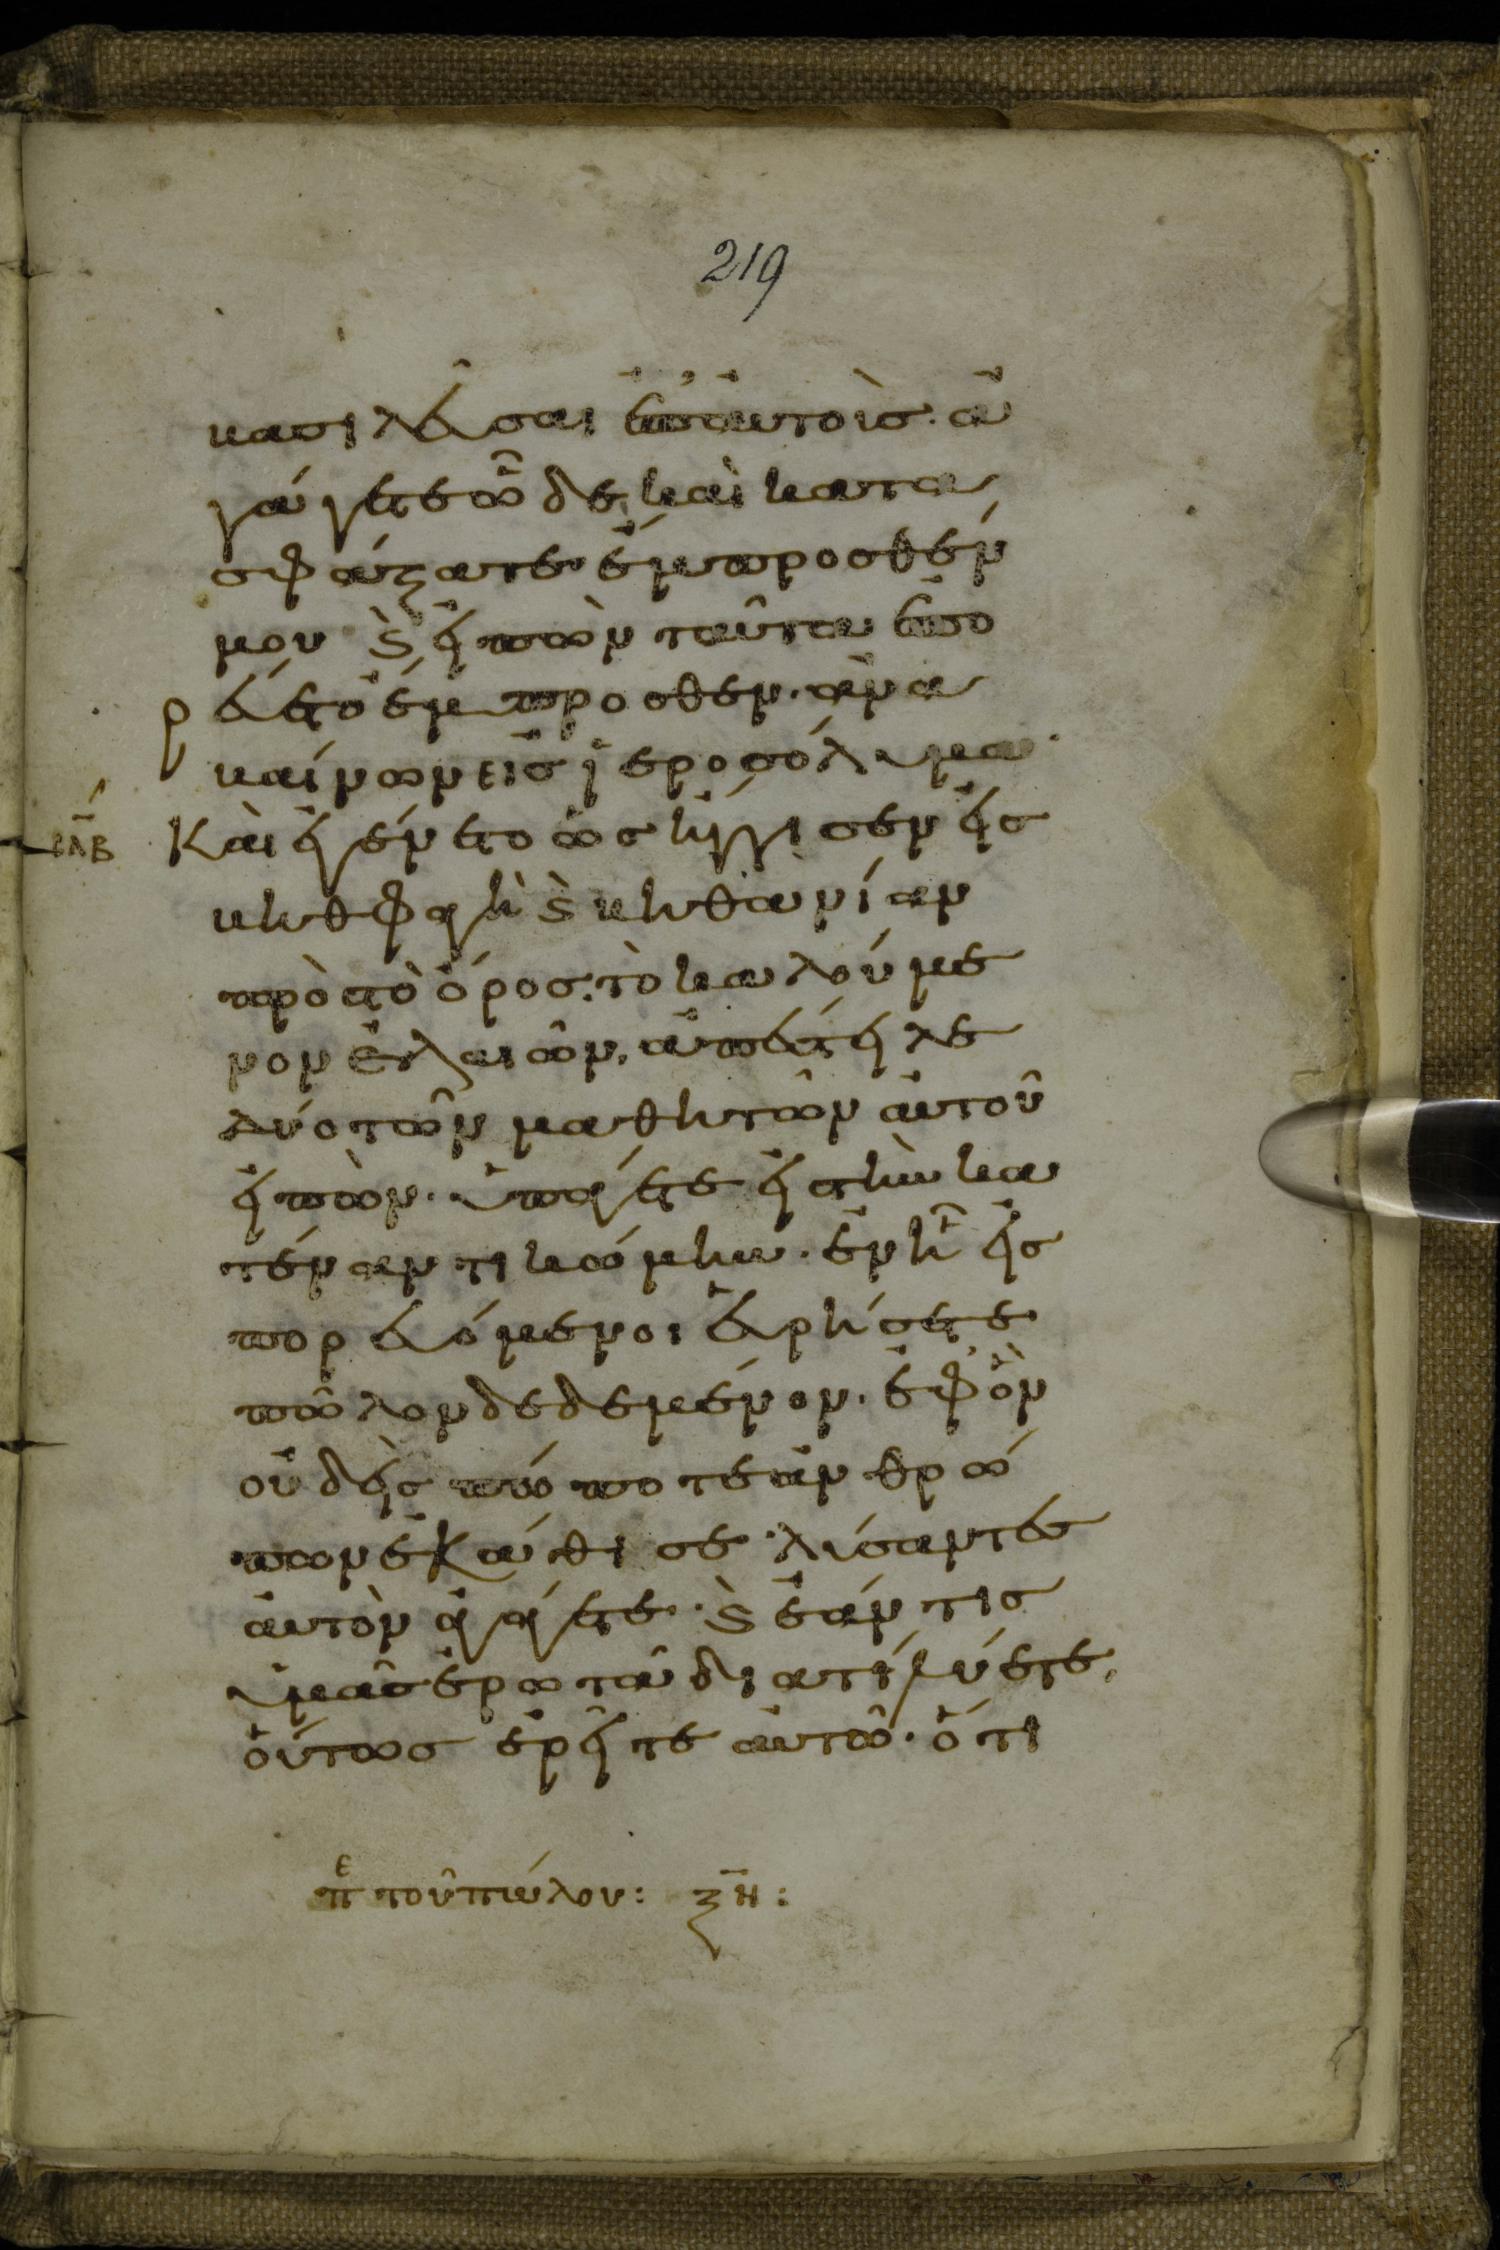 219
κασιλεῦσαι ἐπ' αὐτοῖς. ἀ
γάγετε ὧδε, καὶ κατα
σφάξατε ἔμπροσθέν
μου ϗ εἰπὼν ταῦτα ἐπο
ρεύετο ἔμπροσθεν. ἀνα
καίνων εἰς ἱεροσόλυμα.
σλβ Καὶ ἐγένετο ὡς ἤγγισεν εἰς
κηθφαγὴ ϗ κηθανίαν
πρὸς τὸ ὄρος. τὸ καλούμε
νον ἐλαιῶν, ἀπέστειλε
δύο τῶν μαθητῶν αὐτοῦ
εἰπὼν. ὑπάγετε εἰς τὴν κα
τέναντι κώμην. ἐν ἧ εἰσ
πορευόμενοι εὑρήσετε
πῶλον δεδεμένον. ἐφ' ὃν
οὐδεὶς πώποτε ἀνθρώ
πων ἐκάθισε. λύσαντες
αὐτὸν ἀγάγετε. ϗ ἐάν τις
ὑμᾶς ἐρωτᾶ διατί λύετε,
οὕτως ἐρεῖτε αὐτῶ. ὅτι
πε τοῦ πώλου: ξη: